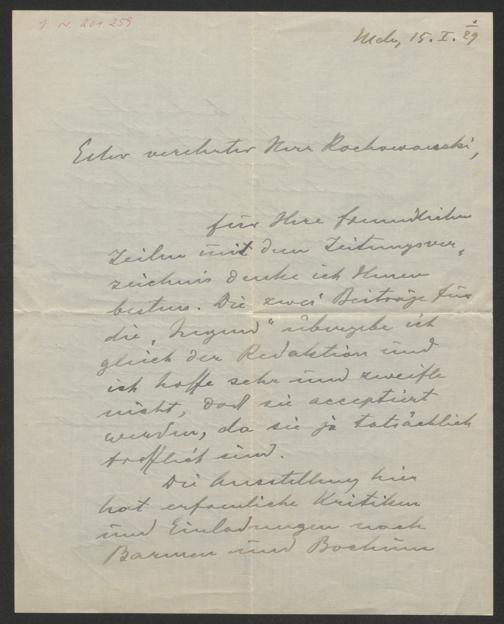 J. N. 201.259
Mch, 15. I. 29
Sehr verehrter Herr Rochowanski,
für Ihre freundlichen
Zeilen mit dem Zeitungsver-
zeichnis danke ich Ihnen
bestens. Die zwei Beiträge für
die „Jugend" übergebe ich
gleich der Redaktion und
ich hoffe sehr und zweifle
nicht, daß sie acceptiert
werden, da sie ja tatsächlich
trefflich sind.
Die Ausstellung hier
hat erfreuliche Kritiken
und Einladungen nach
Barmen und Bochum